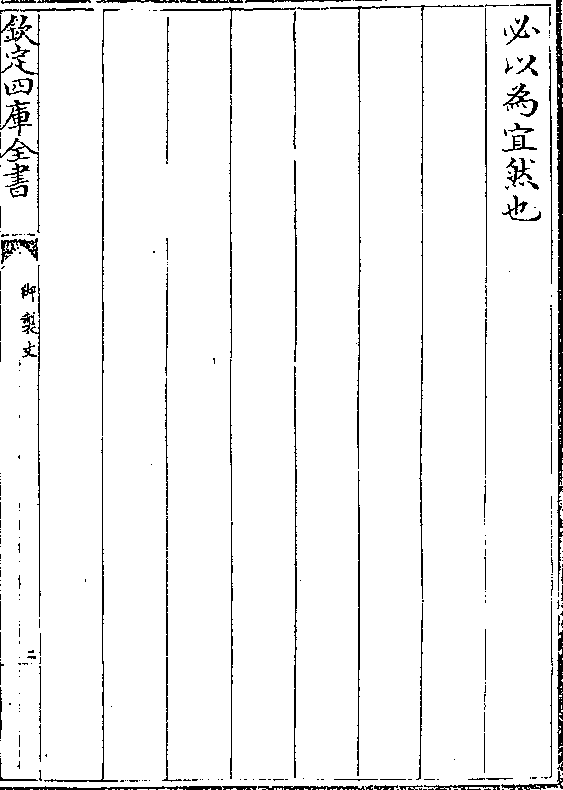 必以為宜然也
欽定四庫全書
御製文
二